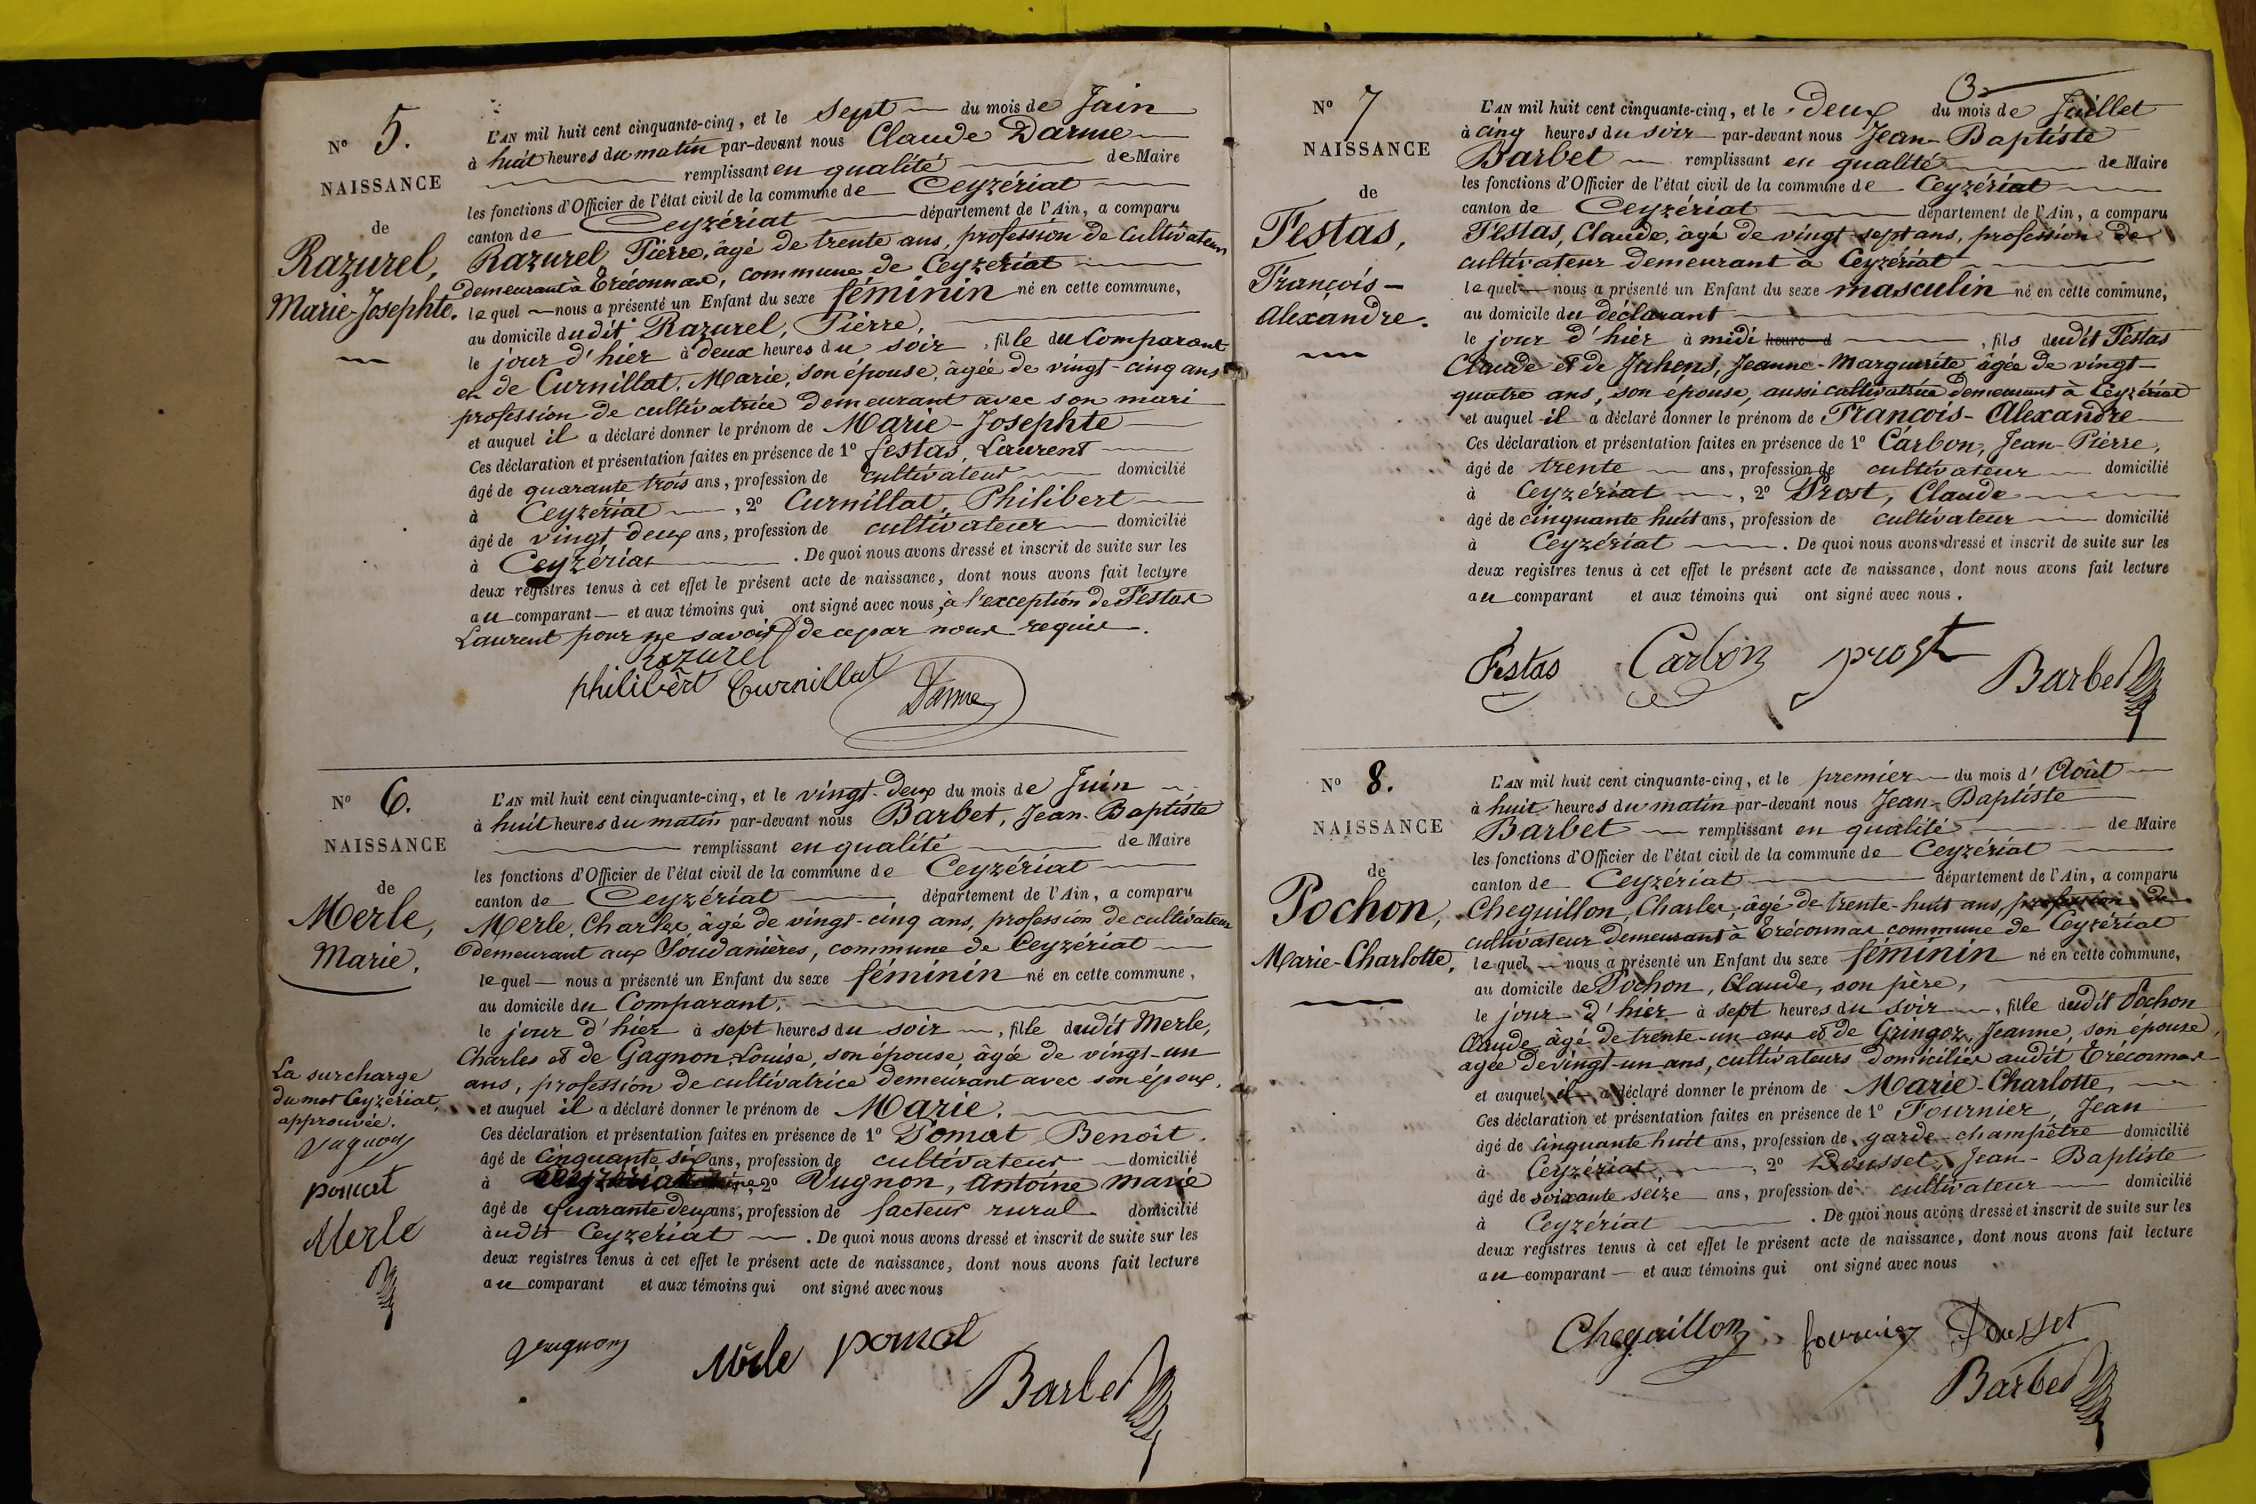 Nº 5.
NAISSANCE
de
Razurel,
Marie-Josephte.
L'AN mil huit cent cinquante-cinq, et le sept du mois de Juin
à huit heures du matin par-devant nous Claude Darme
remplissant en qualité de Maire
les fonctions d'Officier de l'état civil de la commune de Ceyzériat
canton de Ceyzériat département de l'Ain, a comparu
Razurel Pierre, âgé de trente ans, profession de Cultivateur
demeurant à Tréconnas, commune de Ceyzériat
lequel nous a présenté un Enfant du sexe féminin né en cette commune,
au domicile dudit Razurel, Pierre,
le jour d'hier à deux heures du soir, fille du Comparant
et de Curnillat, Marie, son épouse, âgée de vingt-cinq ans
profession de cultivatrice demeurant avec son mari
et auquel il a déclaré donner le prénom de Marie-Josephte
Ces déclaration et présentation faites en présence de 1º festas, Laurent
âgé de quarante trois ans, profession de cultivateur domicilié
à Ceyzériat, 2º Curnillat, Philibert
âgé de vingt deux ans, profession de cultivateur domicilié
à Ceyzériat. De quoi nous avons dressé et inscrit de suite sur les
deux registres tenus à cet effet le présent acte de naissance, dont nous avons fait lecture
au comparant et aux témoins qui ont signé avec nous, à l'exception de Festas
Laurent pour ne savoir de ce par nous requis.
Razurel
philibert Curnillat Darme
Nº 6.
NAISSANCE
de
Merle,
Marie.
La surcharge
du mot Ceyzériat,
approuvée.
Vugnon
pomat
Merle
L'AN mil huit cent cinquante-cinq, et le vingt-deux du mois de Juin
à huit heures du matin par-devant nous Barbet, Jean-Baptiste
remplissant en qualité de Maire
les fonctions d'Officier de l'état civil de la commune de Ceyzériat
canton de Ceyzériat département de l'Ain, a comparu
Merle, Charles, âgé de vingt-cinq ans, profession de cultivateur
demeurant aux Soudanières, commune de Ceyzériat
lequel nous a présenté un Enfant du sexe féminin né en cette commune,
au domicile du Comparant,
le jour d'hier à sept heures du soir, fille dudit Merle,
Charles et de Gagnon, Louise, son épouse, âgée de vingt-un
ans, profession de cultivatrice demeurant avec son époux,
et auquel il a déclaré donner le prénom de Marie.
Ces déclaration et présentation faites en présence de 1º Pomat Benoît.
âgé de Cinquante six ans, profession de cultivateur domicilié
à Ceyzériat 2º Vugnon, Antoine Marie
âgé de quarante deux ans, profession de facteur rural domicilié
audit Ceyzériat. De quoi nous avons dressé et inscrit de suite sur les
deux registres tenus à cet effet le présent acte de naissance, dont nous avons fait lecture
au comparant et aux témoins qui ont signé avec nous
Vugnon Merle pomat
Barbet
3
Nº 7
NAISSANCE
de
Festas,
François-
Alexandre.
L'AN mil huit cent cinquante-cinq, et le deux du mois de Juillet
à cinq heures du soir par-devant nous Jean-Baptiste
Barbet remplissant en qualité de Maire
les fonctions d'Officier de l'état civil de la commune de Ceyzériat
canton de Ceyzériat département de l'Ain, a comparu
Festas, Claude, âgé de vingt-sept ans, profession de
cultivateur demeurant à Ceyzériat
lequel nous a présenté un Enfant du sexe masculin né en cette commune,
au domicile du déclarant
le jour d'hier à midi heure d, fils dudit Festas
Claude et de Juhens, Jeanne-Marguerite âgée de vingt-
quatre ans, son épouse, aussi cultivatrice demeurant à Ceyzériat
et auquel il a déclaré donner le prénom de François-Alexandre
Ces déclaration et présentation faites en présence de 1º Carbon, Jean-Pierre,
âgé de trente ans, profession de cultivateur domicilié
à Ceyzériat, 2º Prost, Claude
âgé de cinquante huit ans, profession de cultivateur domicilié
à Ceyzériat. De quoi nous avons dressé et inscrit de suite sur les
deux registres tenus à cet effet le présent acte de naissance, dont nous avons fait lecture
au comparant et aux témoins qui ont signé avec nous.
Festas Carbon prost
Barbet
Nº 8.
NAISSANCE
de
Pochon,
Marie-Charlotte,
L'AN mil huit cent cinquante-cinq, et le premier du mois d'Août
à huit heures du matin par-devant nous Jean-Baptiste
Barbet remplissant en qualité de Maire
les fonctions d'Officier de l'état civil de la commune de Ceyzériat
canton de Ceyzériat département de l'Ain, a comparu
Cheguillon, Charles, âgé de trente-huit ans, profession de
cultivateur demeurant à Tréconnas commune de Ceyzériat
lequel nous a présenté un Enfant du sexe féminin né en cette commune,
au domicile de Pochon, Claude, son père,
le jour d'hier à sept heures du soir, fille dudit Pochon
Claude âgé de trente-un ans et de Gringoz, Jeanne, son épouse,
agée de vingt-un ans, cultivateurs domiciliés audit Tréconnas
et auquel il a déclaré donner le prénom de Marie-Charlotte,
Ces déclaration et présentation faites en présence de 1º Fournier, Jean
âgé de Cinquante huit ans, profession de garde-champêtre domicilié
à Ceyzériat, 2º Dousset, Jean-Baptiste
âgé de soixante seize ans, profession de cultivateur domicilié
à Ceyzériat. De quoi nous avons dressé et inscrit de suite sur les
deux registres tenus à cet effet le présent acte de naissance, dont nous avons fait lecture
au comparant et aux témoins qui ont signé avec nous
Cheguillon fournier Dousset
Barbet